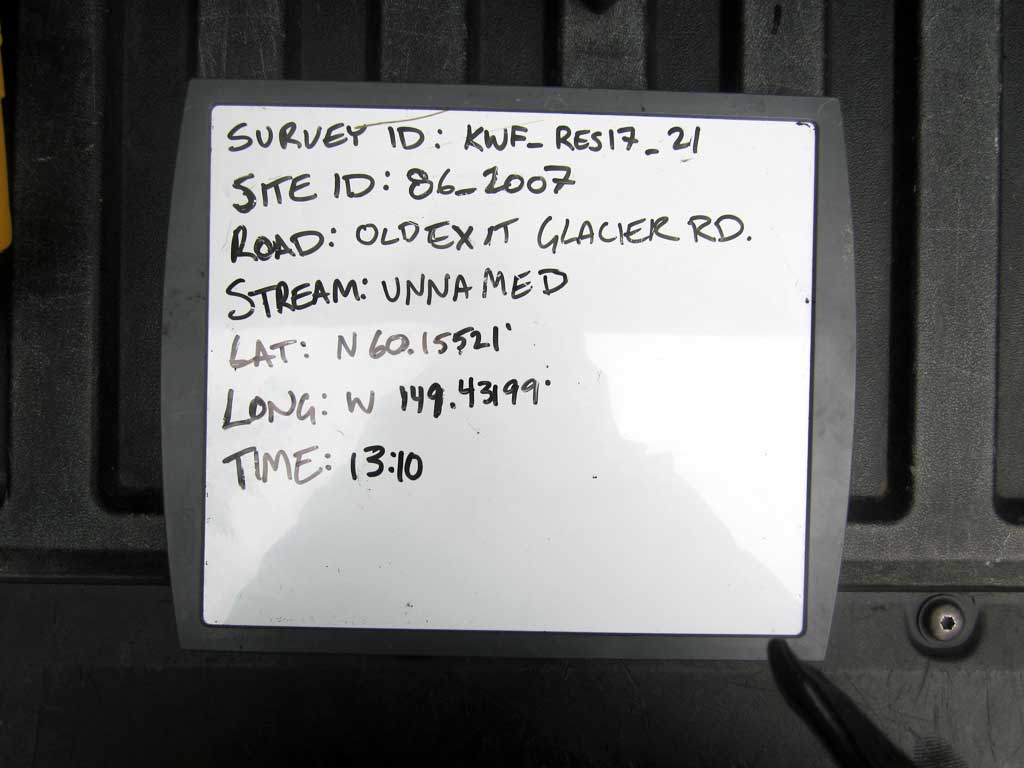 SURVEY ID: KWF_RES17_21
SITE ID: 86_2007
ROAD: OLD EXIT GLACIER RD.
STREAM: UNNAMED
LAT: N 60.15521°
LONG: W 149.43199°
TIME: 13:10